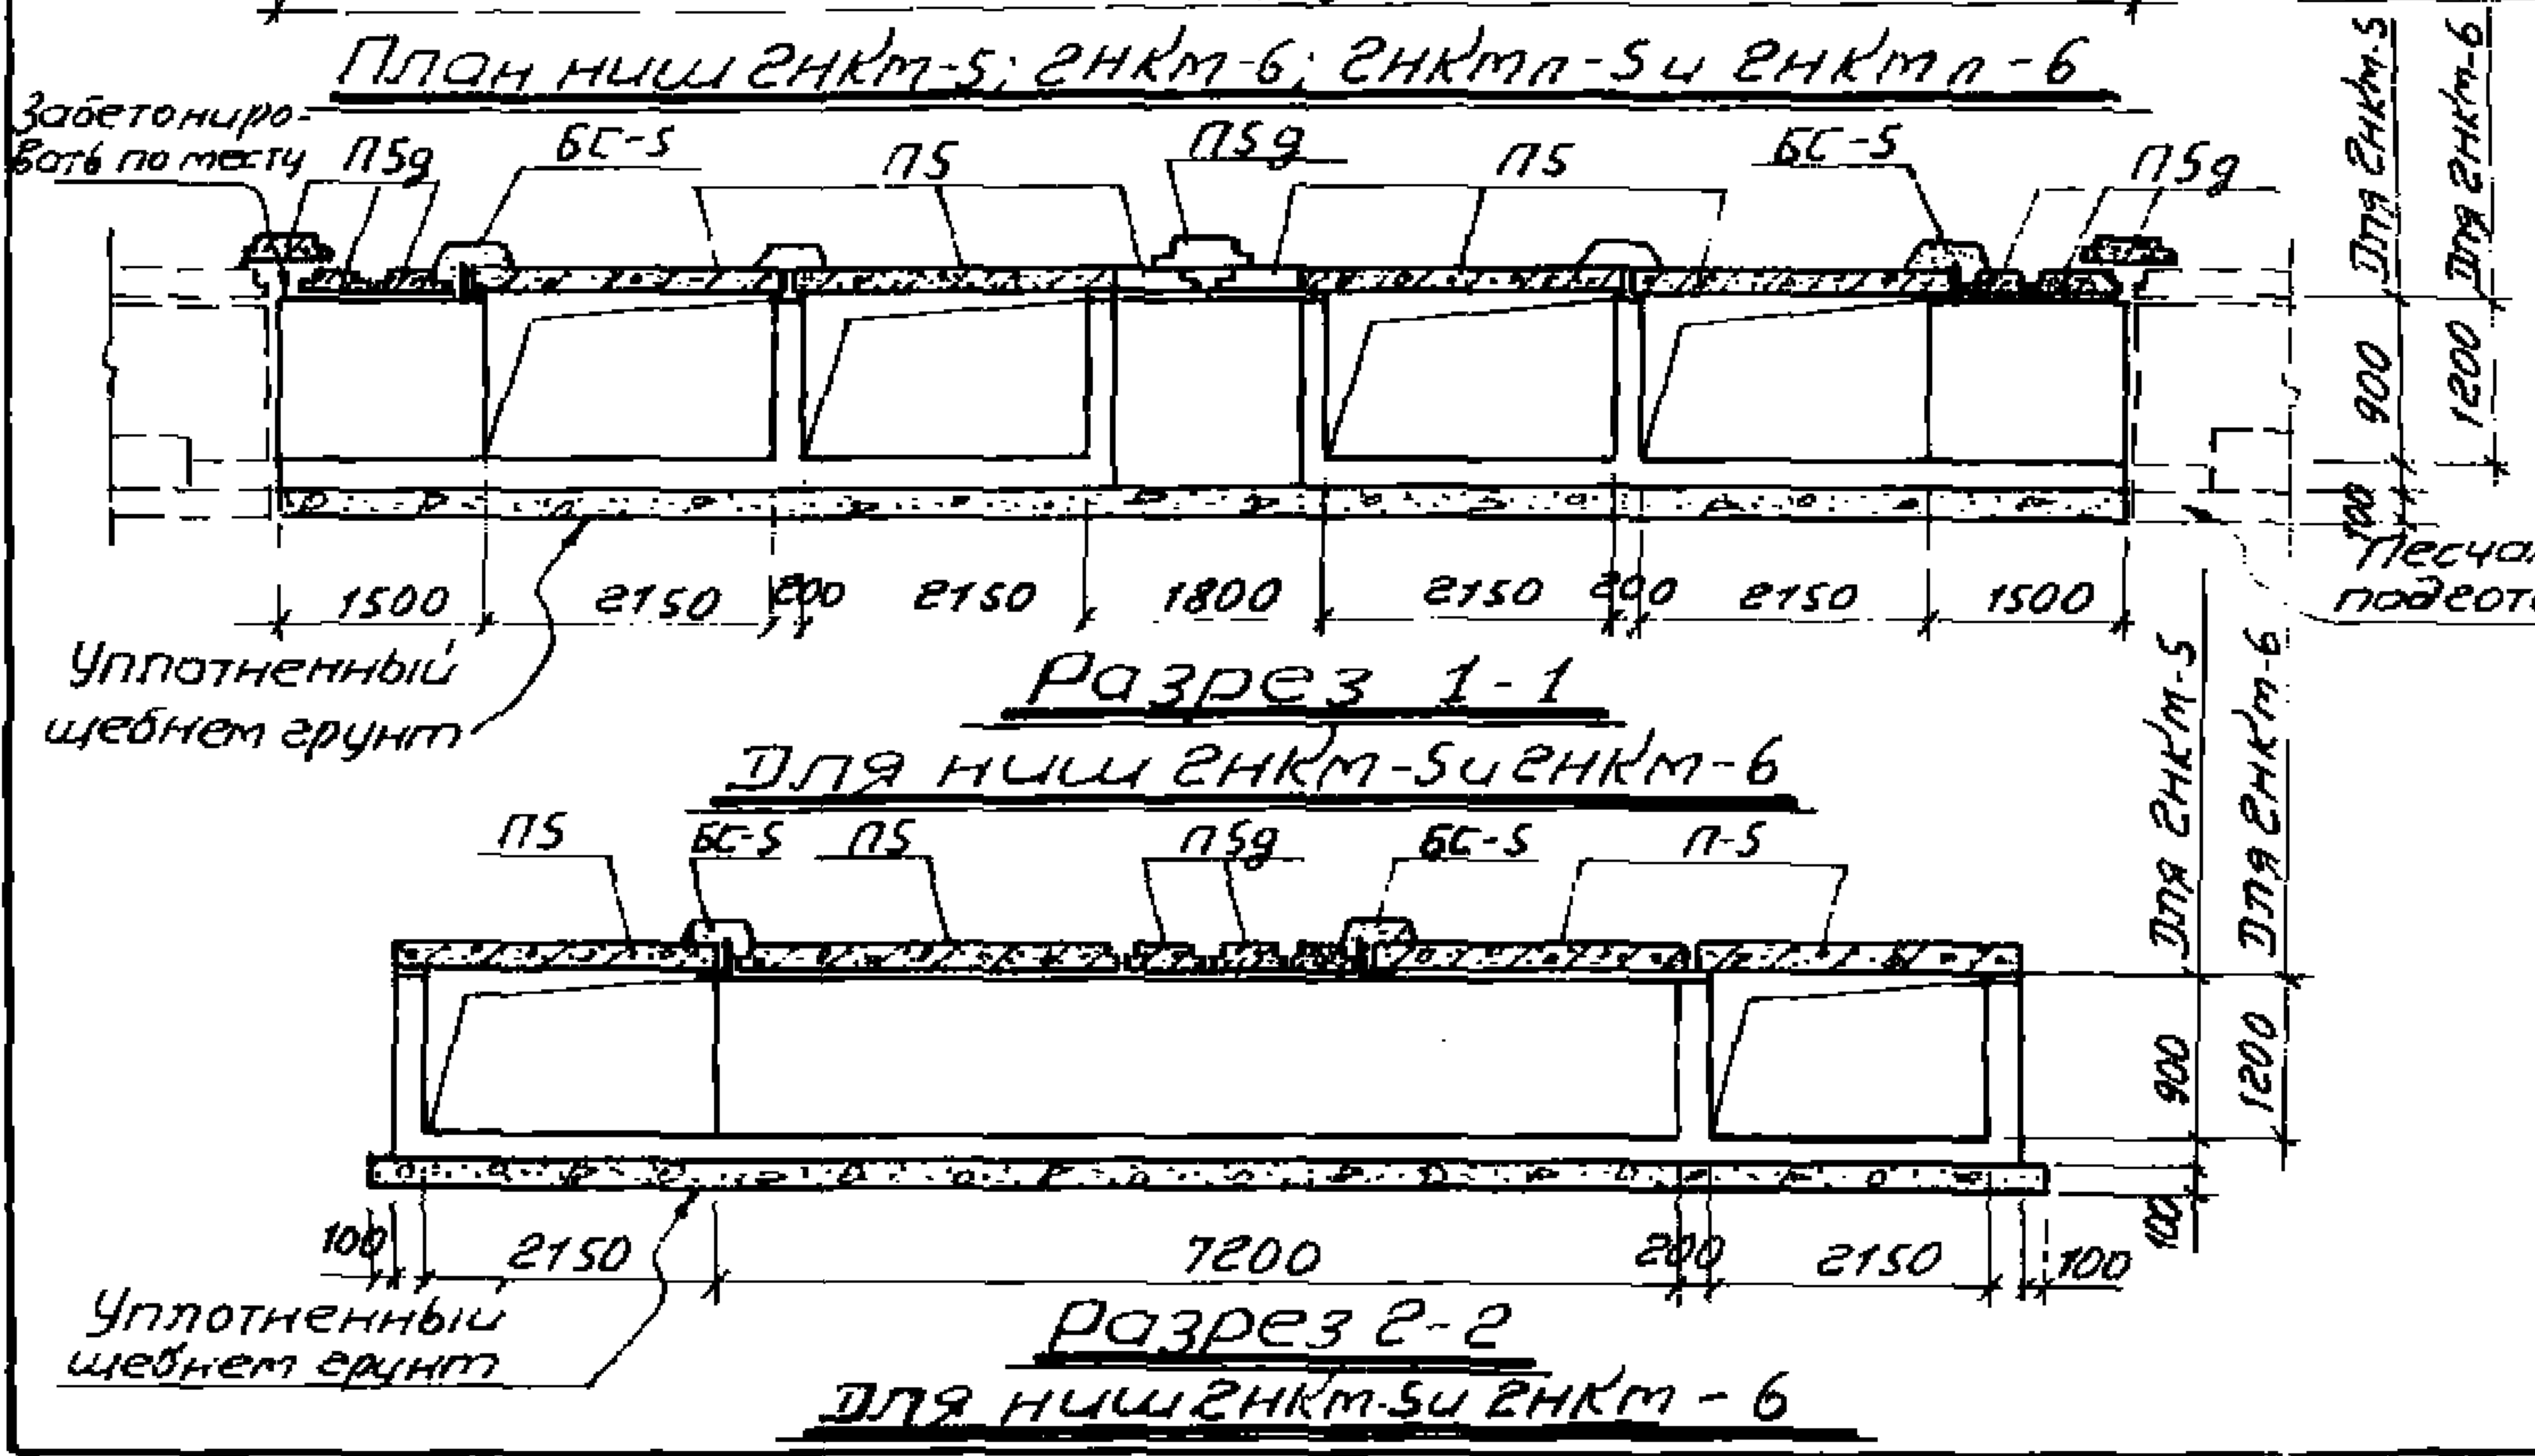 План ниш 2нкт-5; 2нкт-6; 2нктп-5 и 2нктп-6
Забетониро-
вать по месту
П5g
БС-5
П5
П5g
П5
БС-5
П5g
Для 2нкт-5
Для 2нкт-6
900
1200
100
1500
2150
200
2150
1800
2150
200
2150
1500
Уплотненный
щебнем грунт
Разрез 1-1
Для ниш 2нкт-5 и 2нкт-6
П5
БС-5
П5
П5g
БС-5
П-5
Для 2нкт-5
Для 2нкт-6
900
1200
100
100
2150
7200
200
2150
100
Уплотненный
щебнем грунт
Разрез 2-2
Для ниш 2нкт-5 и 2нкт-6